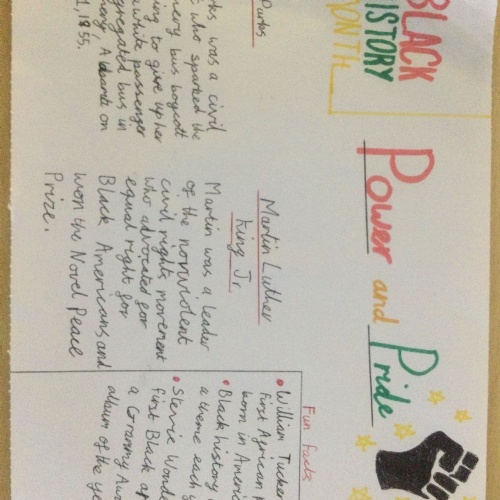 BLACK
HISTORY
MONTH
Power and Pride
Parks
was a civil
who sparked the
bus boycott
to give up her
white passenger
bus in
on
Martin Luther
King Jr
Martin was a leader
of the nonviolent
civil rights movement
who advocated for
equal right for
Black Americans and
won the Novel Peace
Prize.
Fun facts
• William Tucker
first African
born in Ameri
• Black history
a theme each y
• Stevie Wonde
first Black
a Grammy Awa
album of the ye